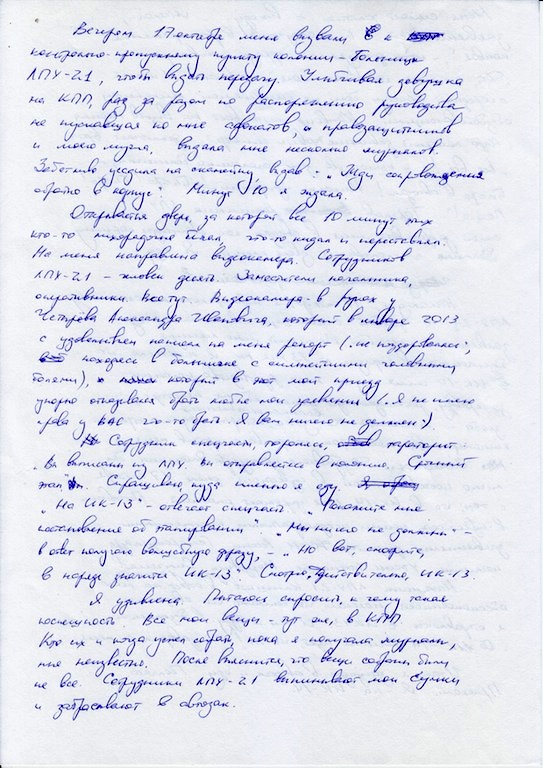 Вечером 17 октября меня вызвали к
контрольно-пропускному пункту колонии-больницы
ЛПУ-21, чтобы выдать передачу. Улыбчивая девушка
на КПП, раз за разом по распоряжению руководства
не пускавшая ко мне адвокатов, правозащитников
и моего мужа, выдала мне несколько журналов.
Заботливо усадила на скамейку, выдав: "Жди сопровождения
обратно в корпус". Минут 10 я ждала.
Открывается дверь, за которой все 10 минут этих
кто-то лихорадочно бегал, что-то кидал и переставлял.
На меня направлена видеокамера. Сотрудников
ЛПУ-21 - человек десять. Заместители начальника,
оперативники. Все тут. Видеокамера - в руках у
Александра Ивановича, который в январе 2013
с удовольствием написал на меня рапорт ("не поздоровалась",
находясь в больничке с сильнейшими головными
болями), который в мой приезд
упорно отказывался брать любые мои заявления ("Я не имею
права у ВАС что-то брать. Я Вам ничего не должен").
Сотрудник спецчасти, торопясь, тараторит:
"Вы выписаны из ЛПУ. Вы отправляетесь в колонию. Срочный
этап". Спрашиваю, куда именно я еду.
"На ИК-13" - отвечает спецчасть. "Покажите мне
постановление об этапировании". "Мы ничего не должны" -
в ответ получаю волшебную фразу, - "Но вот, смотрите,
в наряде значится ИК-13". Смотрю, действительно, ИК-13.
Я удивлена. Пытаюсь спросить, к чему такая
поспешность. Все мои вещи - тут же, в КПП.
Кто их и когда успел собрать, пока я получала журналы,
мне неизвестно. После выяснится, что вещи собраны были
не все. Сотрудники ЛПУ-21 выпинывают мои сумки
и забрасывают в автозак.